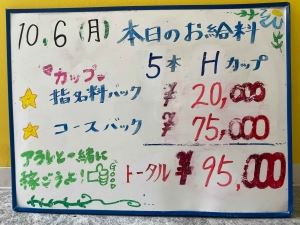 10.6(月) 本日のお給料
カップ 5本 Hカップ
指名料バック ¥20,000
コースバック ¥75,000
アラレと一緒に
稼ごうよ! トータル ¥95,000